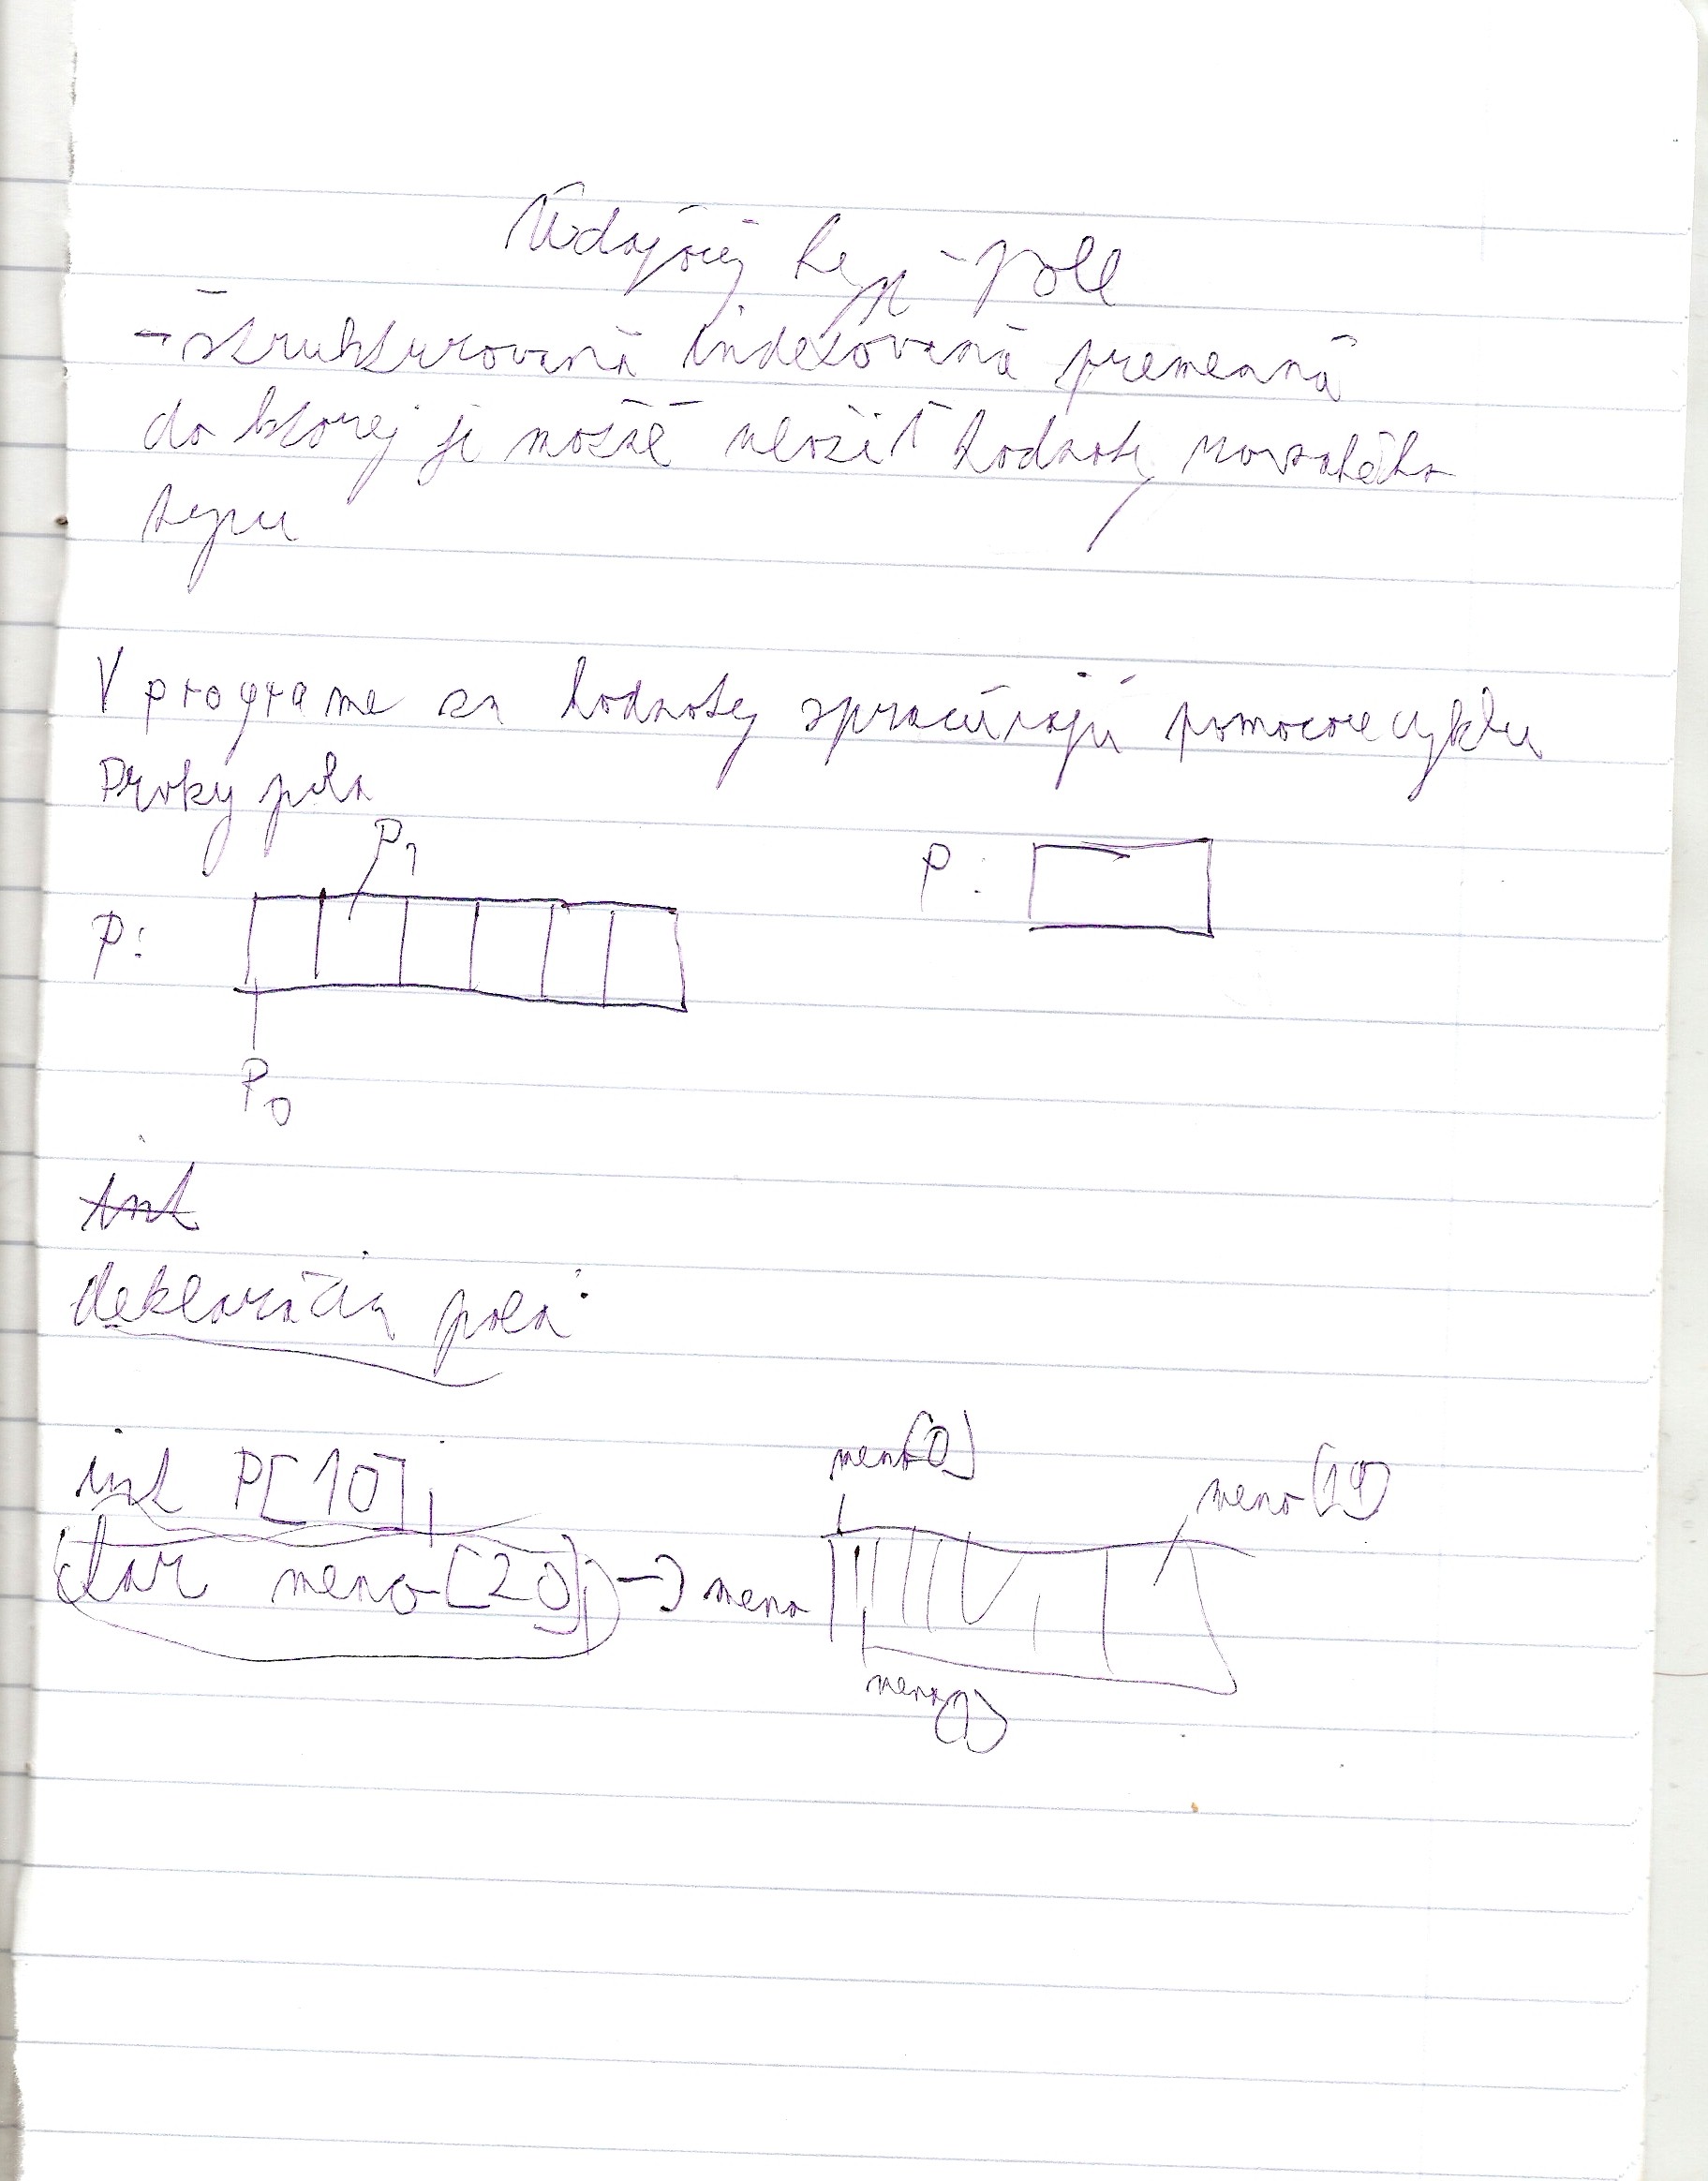 Údajový typ - pole
- štruktúrovaná indexovaná premenná
do ktorej je možné uložiť hodnoty rovnakého
typu
V programe sa hodnoty spracúvajú pomocou cyklu
Prvky pola
P1
P:
P:
P0
int
deklarácia pola:
int P[10];
meno[0]
meno[19]
char meno[20]; → meno
meno[1]